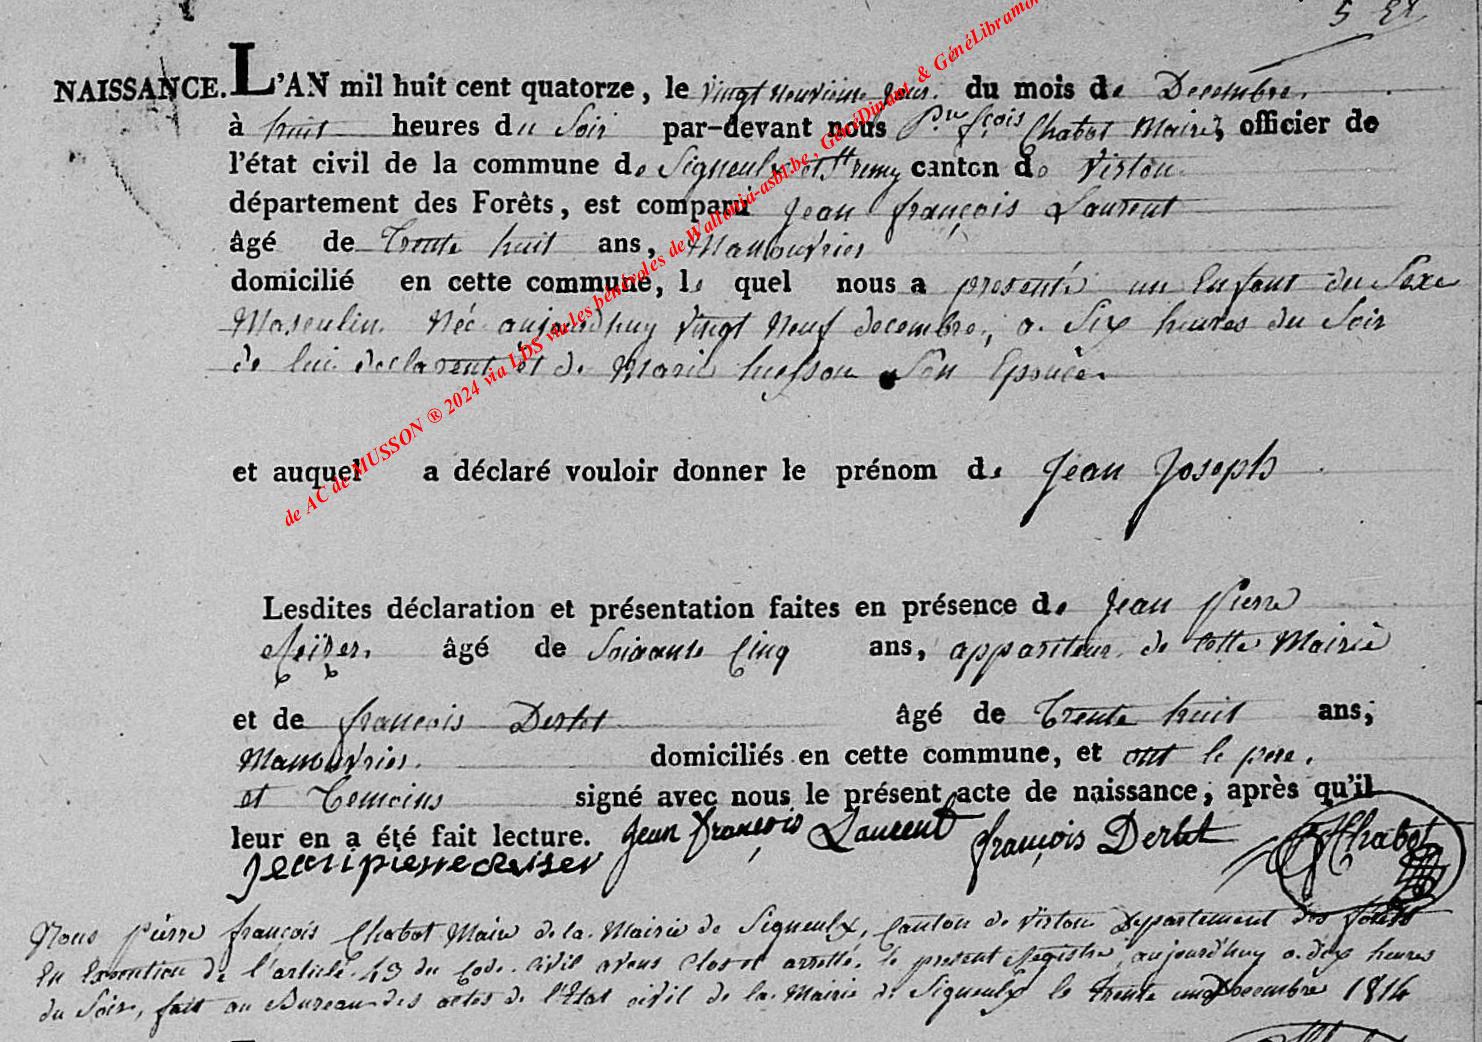 5
NAISSANCE. L'AN mil huit cent quatorze, le vingt neuvieme jour du mois de Decembre.
à huit heures du Soir par-devant nous Prre fçois Chabot Maire, officier de
l'état civil de la commune de Signeulx et St remy canton de Virton
département des Forêts, est comparu Jean françois Laurent
âgé de Trente huit ans, Manouvrier
domicilié en cette commune, le quel nous a presenté un Enfant du Sexe
Masculin Née aujourdhuy vingt Neuf decembre, a Six heures du Soir
de lui declarent et de Marie husson Son Epouse.
et auquel a déclaré vouloir donner le prénom de Jean Joseph
Lesdites déclaration et présentation faites en présence de Jean Pierre
âgé de Soixante Cinq ans, appariteur de Cette Mairie
et de françois Dertet âgé de Trente huit ans,
Manouvrier. domiciliés en cette commune, et ont le pere.
et Temoins signé avec nous le présent acte de naissance, après qu'il
leur en a été fait lecture. Jean françois Laurent françois Dertet Chabot
Jean pierre
Nous pierre françois Chabot Maire de la Mairie de Signeulx, Canton de Virton Departement des forets
En Execution de l'article 43 du Code Civil avons Clos et arretté le present Registre, aujourd'huy a dix heures
du Soir, fait au Bureau des actes de l'Etat civil de la Mairie de Signeulx le trente un Decembre 1814
de AC de MUSSON ® 2024 via LDS via les bénévoles de Wallonia-asbl.be, GénéDinant & GénéLibramont